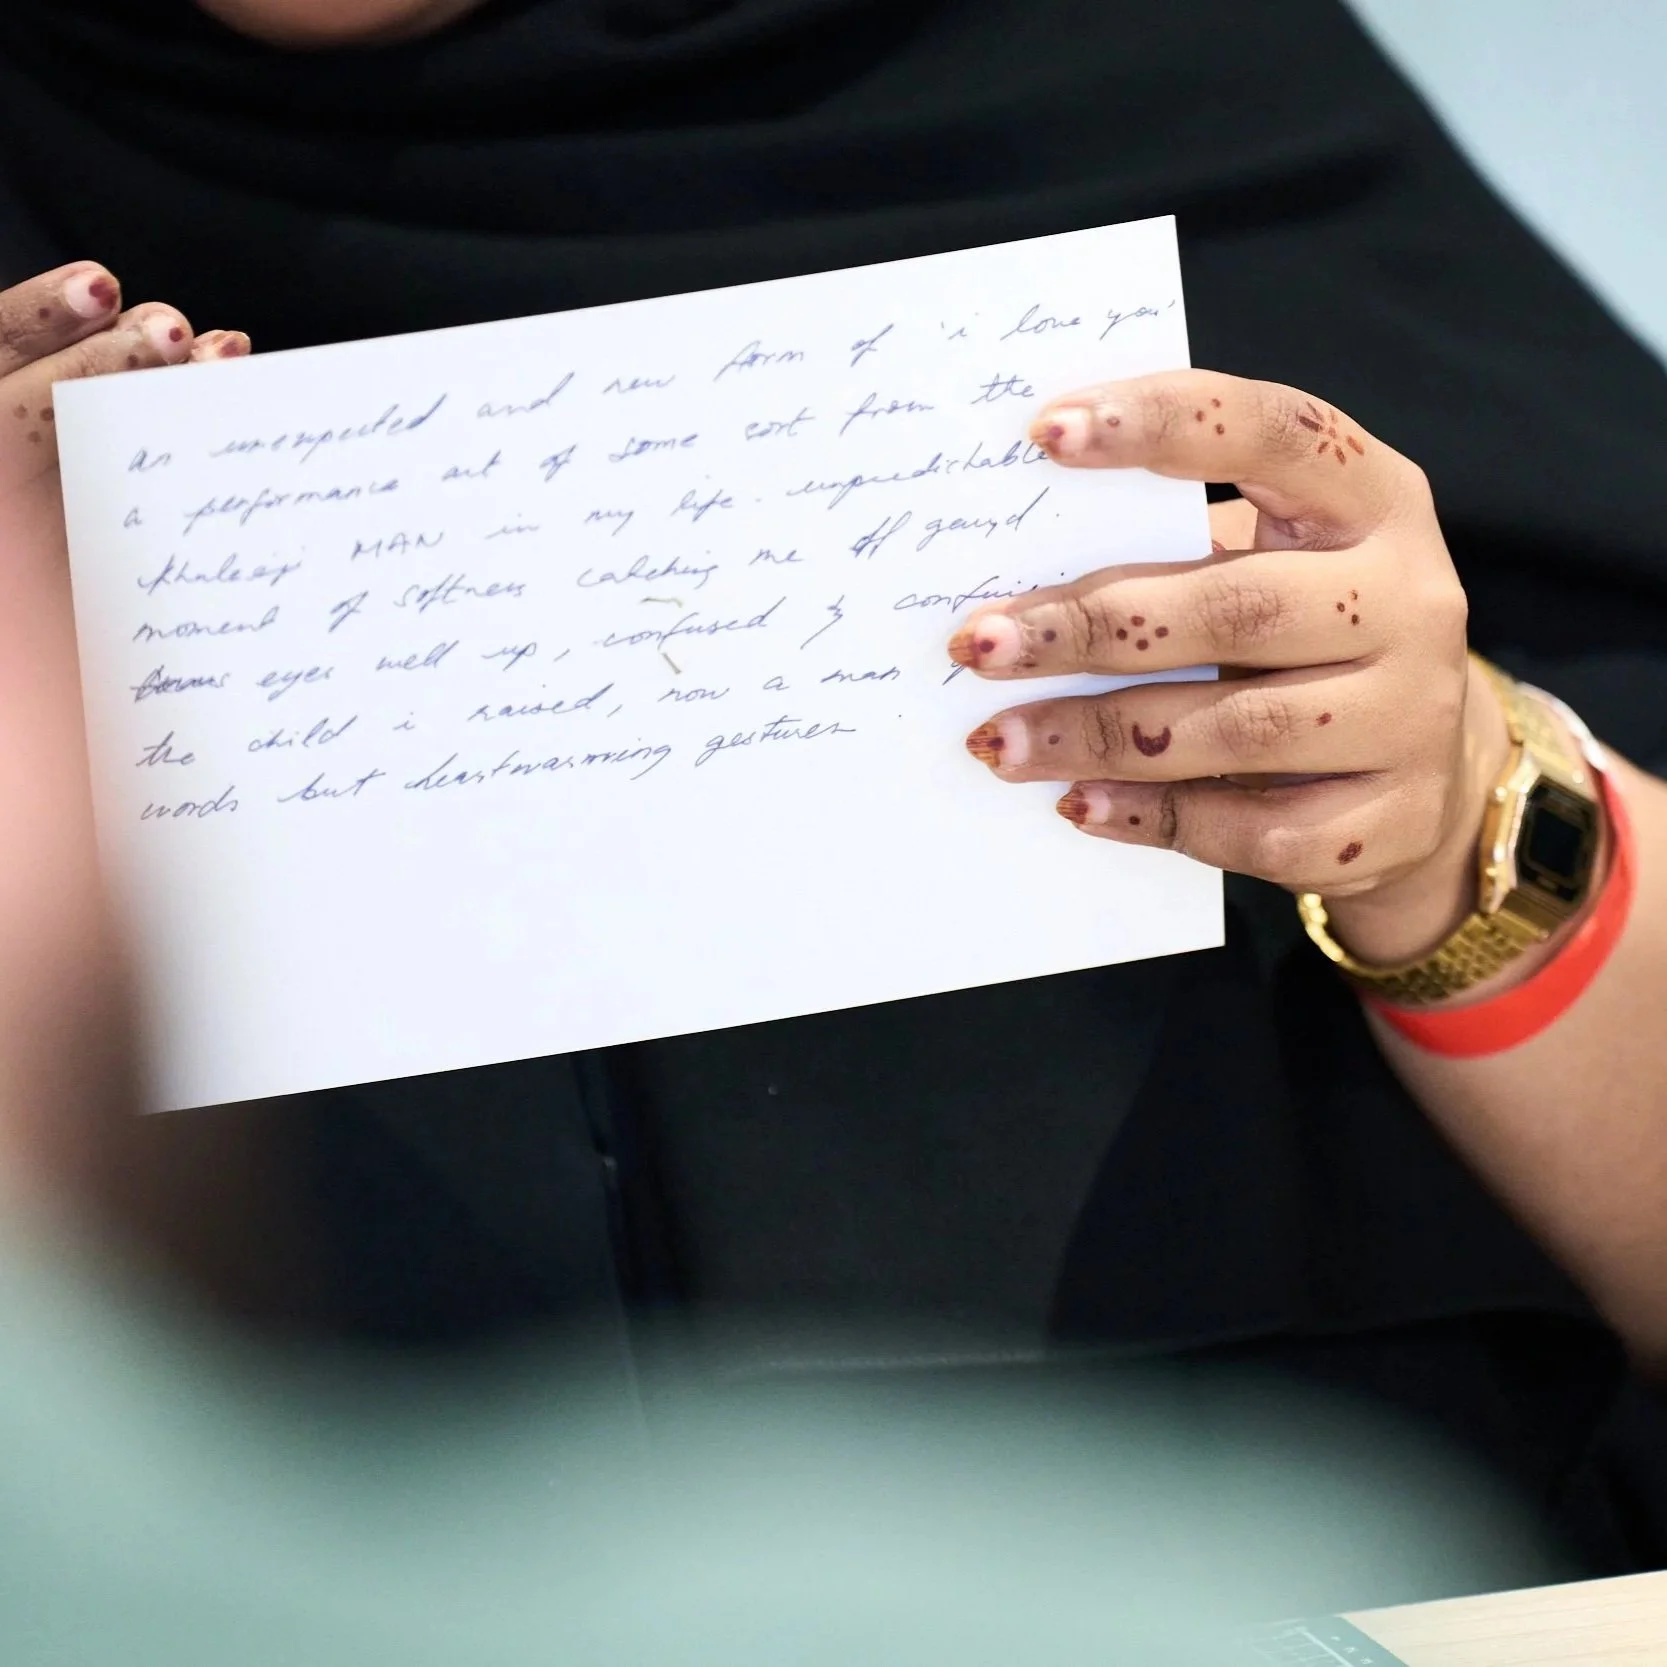 an unexpected and new form of 'i love you'
a performance art of some sort from the
khaleeji MAN in my life. unpredictable
moment of softness catching me off gaurd.
eyes well up, confused & confusi
the child i raised, now a man
words but heartwarming gestures.